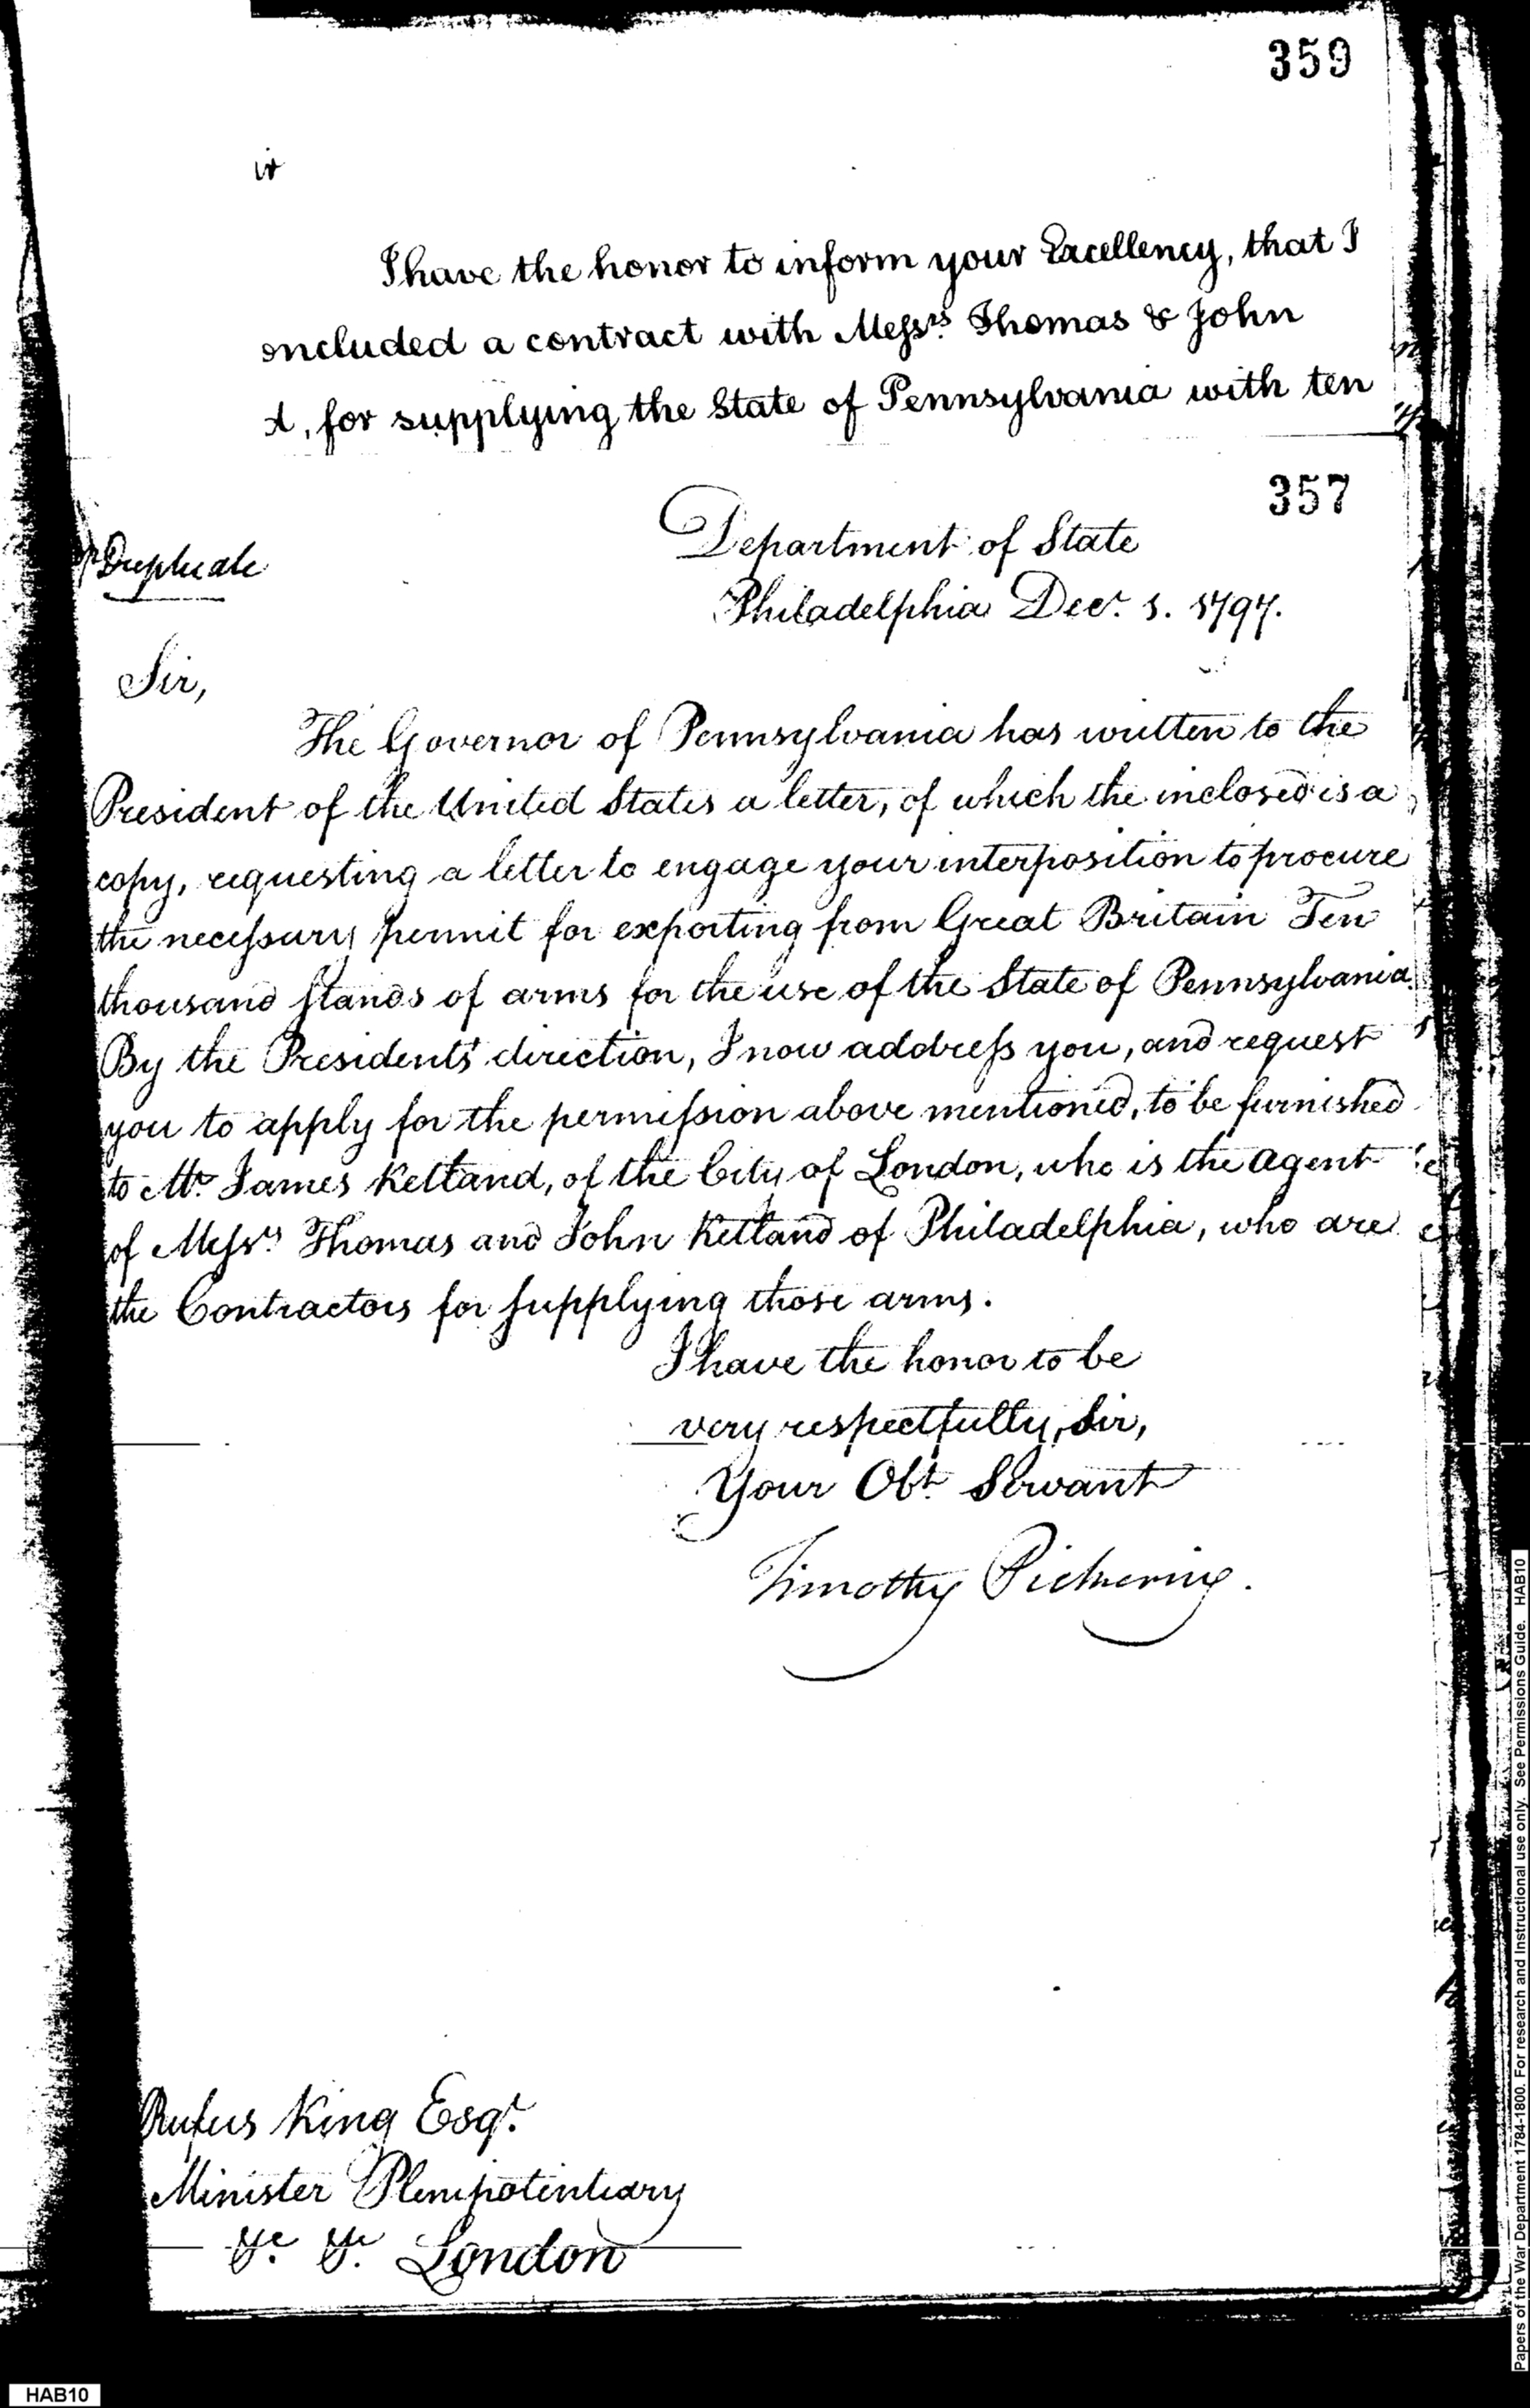 359
ir
I have the honor to inform your Excellency, that I
oncluded a contract with Messrs. Thomas & John
d, for supplying the State of Pennsylvania with ten
357
Department of State
Duplicate
Philadelphia Decr. 1. 1797.
Sir,
The Governor of Pennsylvania has written to the
President of the United States a letter, of which the inclosed is a
copy, requesting a letter to engage your interposition to procure
the necessary permit for exporting from Great Britain Ten
thousand stands of arms for the use of the State of Pennsylvania.
By the President's direction, I now address you, and request
you to apply for the permission above mentioned, to be furnished
to Mr. James Ketland, of the City of London, who is the Agent
of Messrs. Thomas and John Ketland of Philadelphia, who are
the Contractors for supplying those arms.
I have the honor to be
very respectfully, Sir,
Your Obt. Servant
Timothy Pickering.
Rufus King Esqr.
Minister Plenipotentiary
&c. &c. London
HAB10
Papers of the War Department 1784-1800. For research and Instructional use only. See Permissions Guide. HAB10